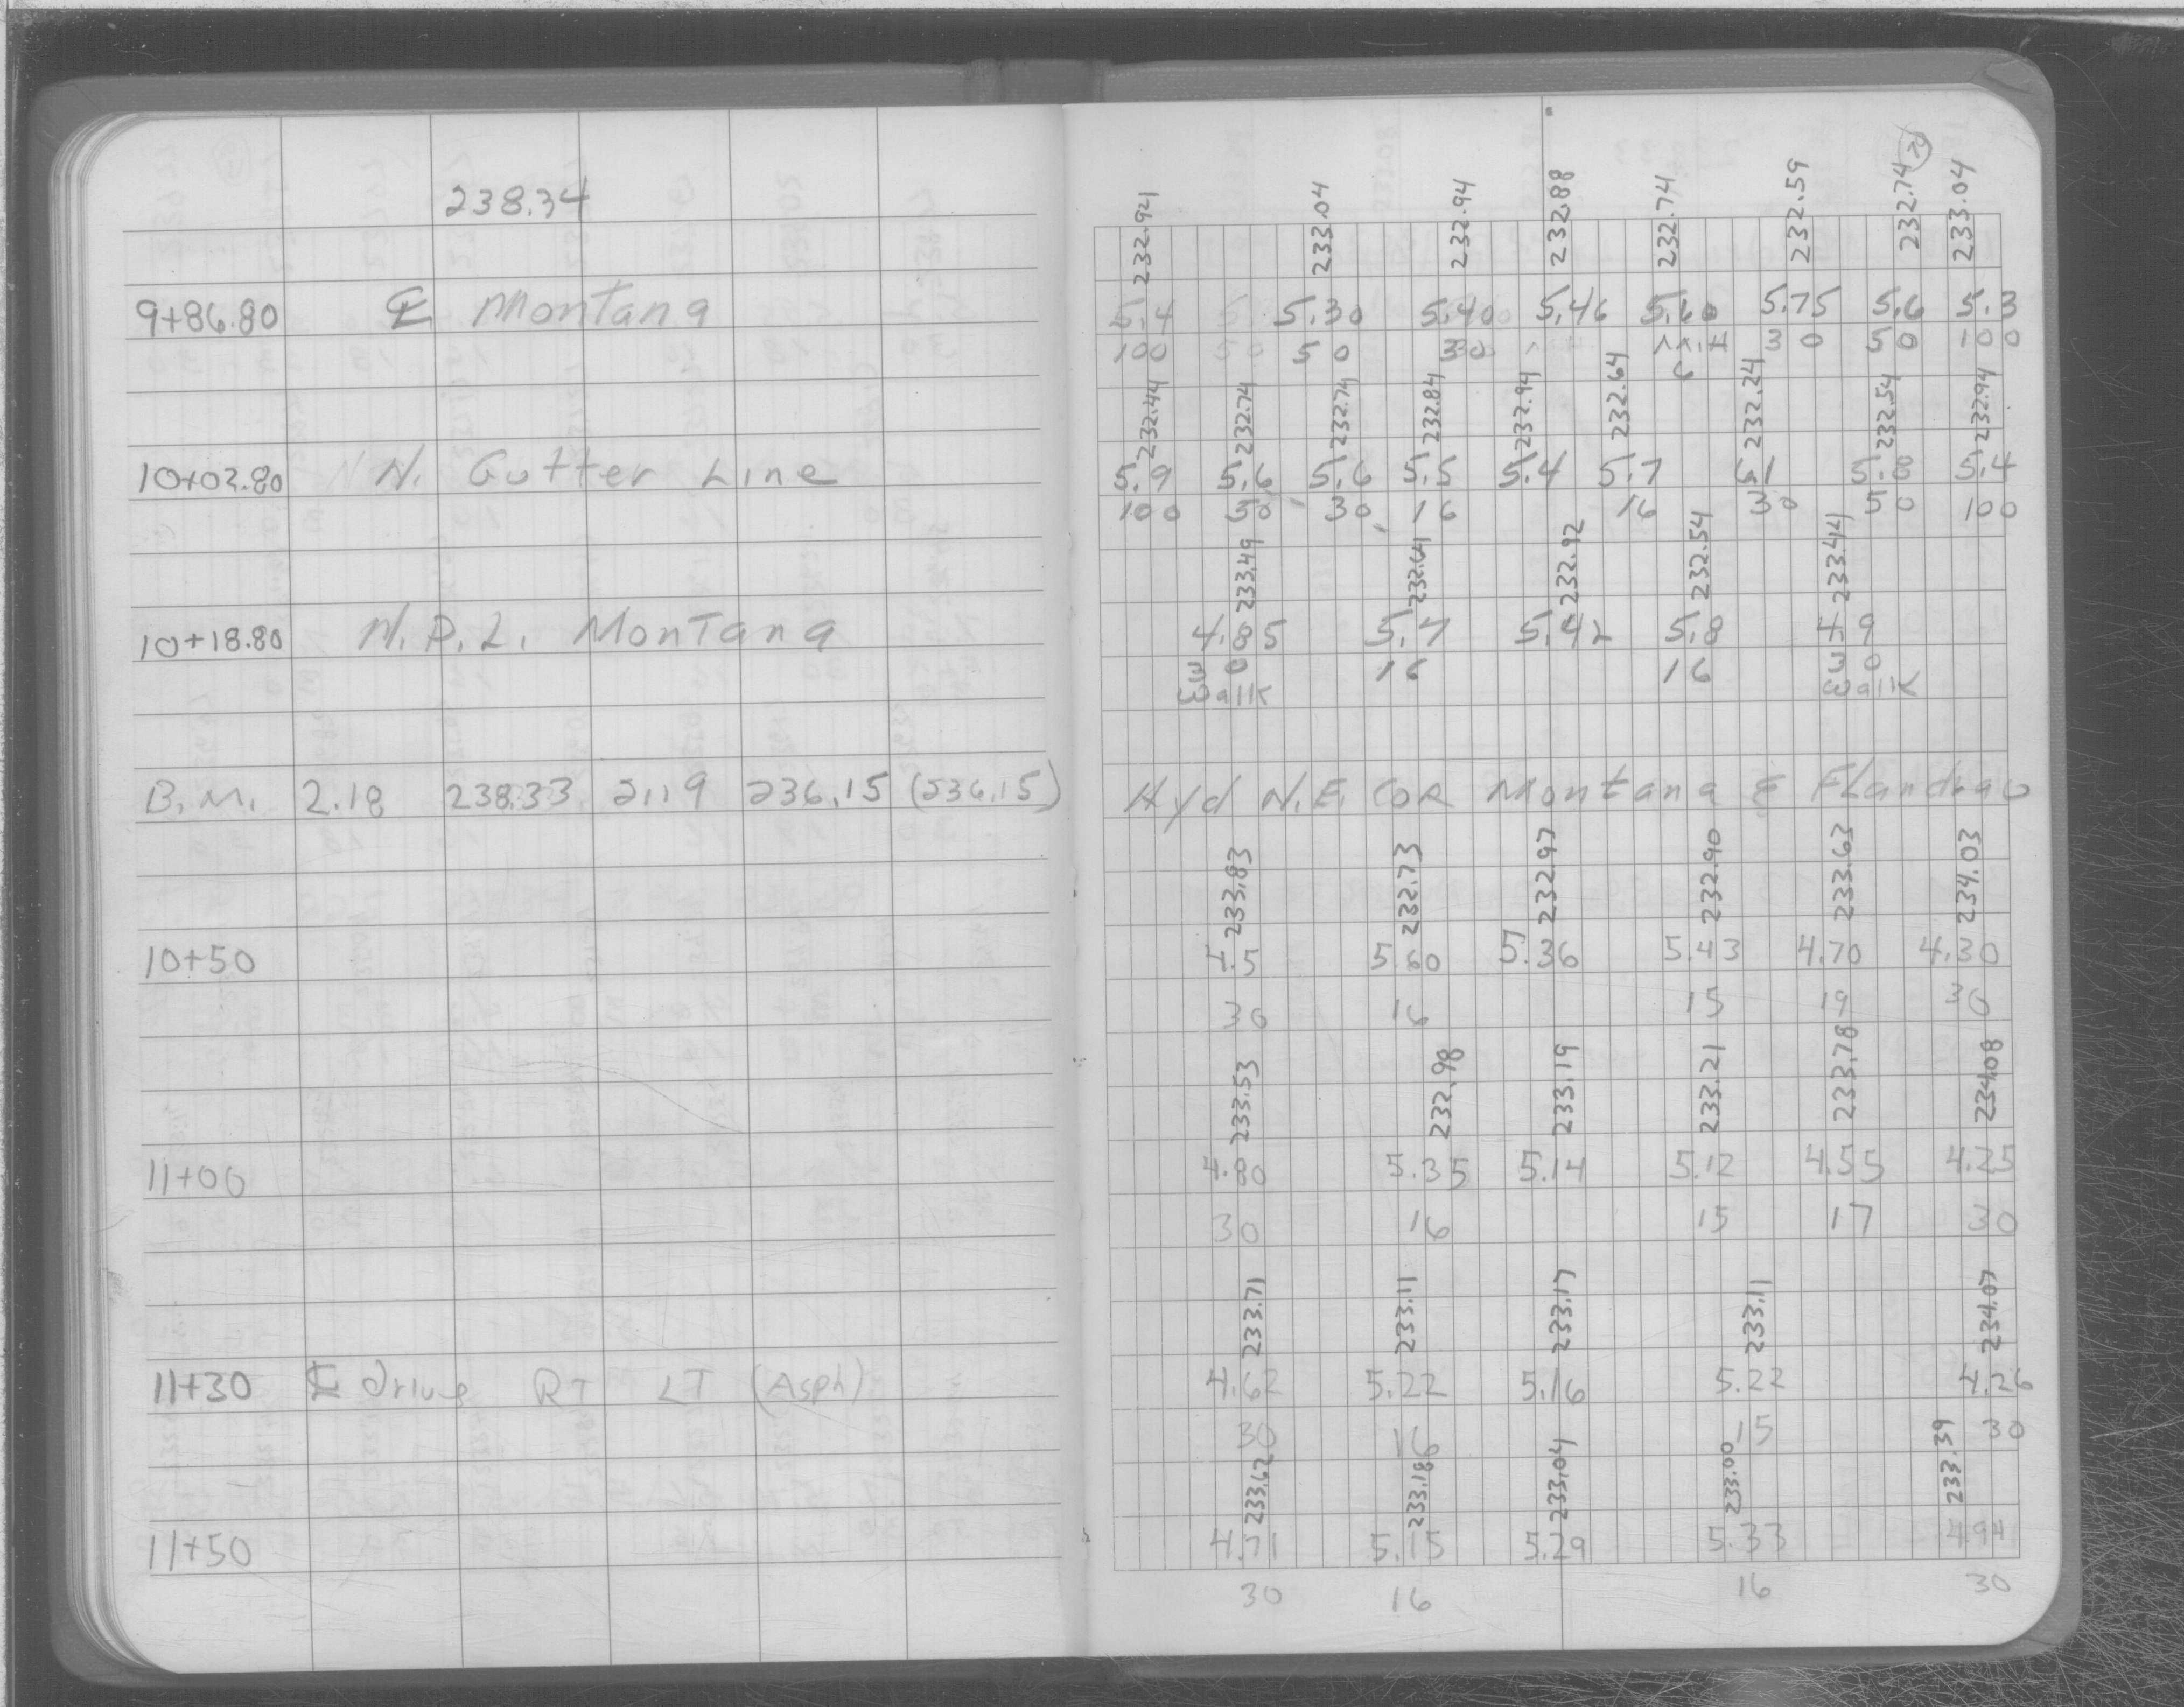 238.34
232.94 233.04 232.94 232.88 232.74 232.59 232.74 233.04
9+86.80 ℄ Montana 5.4 5.30 5.40 5.46 5.60 5.75 5.6 5.3
100 50 30 30 50 100
6
232.44 232.74 232.74 232.84 232.94 232.64 232.24 232.54 232.94
10+02.80 N. Gutter Line 5.9 5.6 5.6 5.5 5.4 5.7 6.1 5.8 5.4
100 50 30 16 16 30 50 100
233.49 232.64 232.92 232.54 233.44
10+18.80 N.P.L. Montana 4.85 5.7 5.42 5.8 4.9
30 16 16 30
Walk Walk
B.M. 2.18 238.33 2.19 236.15 (236.15) Hyd N.E. COR Montana &
233.83 232.73 232.97 232.90 233.63 234.03
10+50 4.5 5.60 5.36 5.43 4.70 4.30
30 16 15 19 30
233.53 232.98 233.19 233.21 233.78 234.08
11+00 4.80 5.35 5.14 5.12 4.55 4.25
30 16 15 17 30
233.71 233.11 233.17 233.11 234.07
11+30 ℄ drive RT LT (Asph) 4.62 5.22 5.16 5.22 4.26
30 16 15 30
233.62 233.18 233.04 233.00 233.39
11+50 4.71 5.15 5.29 5.33 4.94
30 16 16 30